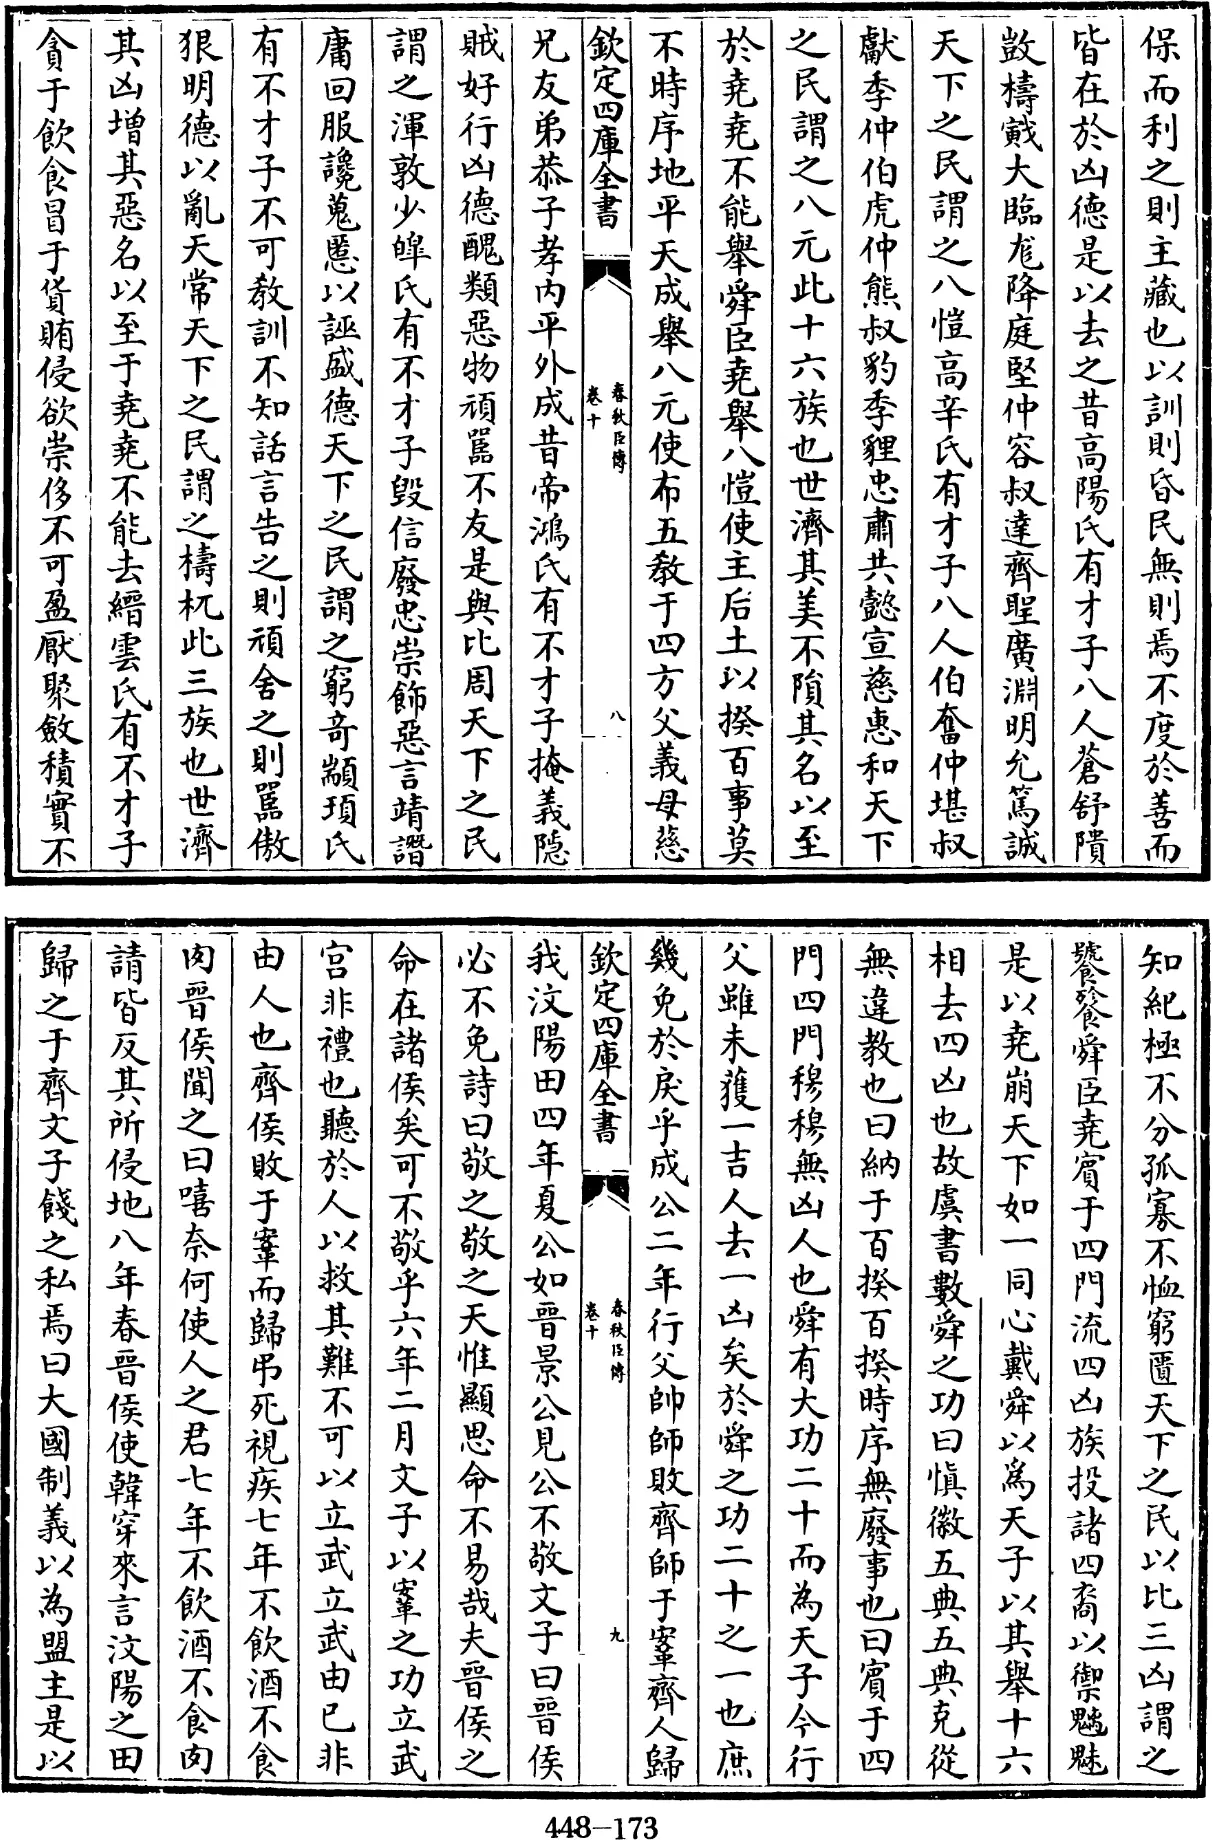 保而利之則主藏也以訓則昏民無則焉不度於善而
皆在於凶德是以去之昔高陽氏有才子八人蒼舒隤
敳檮戭大臨尨降庭堅仲容叔達齊聖廣淵明允篤誠
天下之民謂之八愷高辛氏有才子八人伯奮仲堪叔
獻季仲伯虎仲熊叔豹季貍忠肅共懿宣慈惠和天下
之民謂之八元此十六族也世濟其美不隕其名以至
於堯堯不能舉舜臣堯舉八愷使主后土以揆百事莫
不時序地平天成舉八元使布五教于四方父義母慈
欽定四庫全書
春秋臣傳
卷十
八
兄友弟恭子孝內平外成昔帝鴻氏有不才子掩義隱
賊好行凶德醜類惡物頑嚚不友是與比周天下之民
謂之渾敦少皥氏有不才子毀信廢忠崇飾惡言靖譖
庸回服讒蒐慝以誣盛德天下之民謂之窮奇顓頊氏
有不才子不可教訓不知話言告之則頑舍之則嚚傲
狠明德以亂天常天下之民謂之檮杌此三族也世濟
其凶增其惡名以至于堯堯不能去縉雲氏有不才子
貪于飲食冒于貨賄侵欲崇侈不可盈厭聚斂積實不
知紀極不分孤寡不恤窮匱天下之民以比三凶謂之
饕餮舜臣堯賓于四門流四凶族投諸四裔以禦魑魅
是以堯崩天下如一同心戴舜以爲天子以其舉十六
相去四凶也故虞書數舜之功曰慎徽五典五典克從
無違教也曰納于百揆百揆時序無廢事也曰賓于四
門四門穆穆無凶人也舜有大功二十而為天子今行
父雖未獲一吉人去一凶矣於舜之功二十之一也庶
幾免於戾乎成公二年行父帥師敗齊師于鞌齊人歸
欽定四庫全書
春秋臣傳
卷十
九
我汶陽田四年夏公如晉景公見公不敬文子曰晉侯
必不免詩曰敬之敬之天惟顯思命不易哉夫晉侯之
命在諸侯矣可不敬乎六年二月文子以鞌之功立武
宫非禮也聽於人以救其難不可以立武立武由已非
由人也齊侯敗于鞌而歸弔死視疾七年不飲酒不食
肉晉侯聞之曰嘻奈何使人之君七年不飲酒不食肉
請皆反其所侵地八年春晉侯使韓穿來言汶陽之田
歸之于齊文子餞之私焉曰大國制義以為盟主是以
448-173